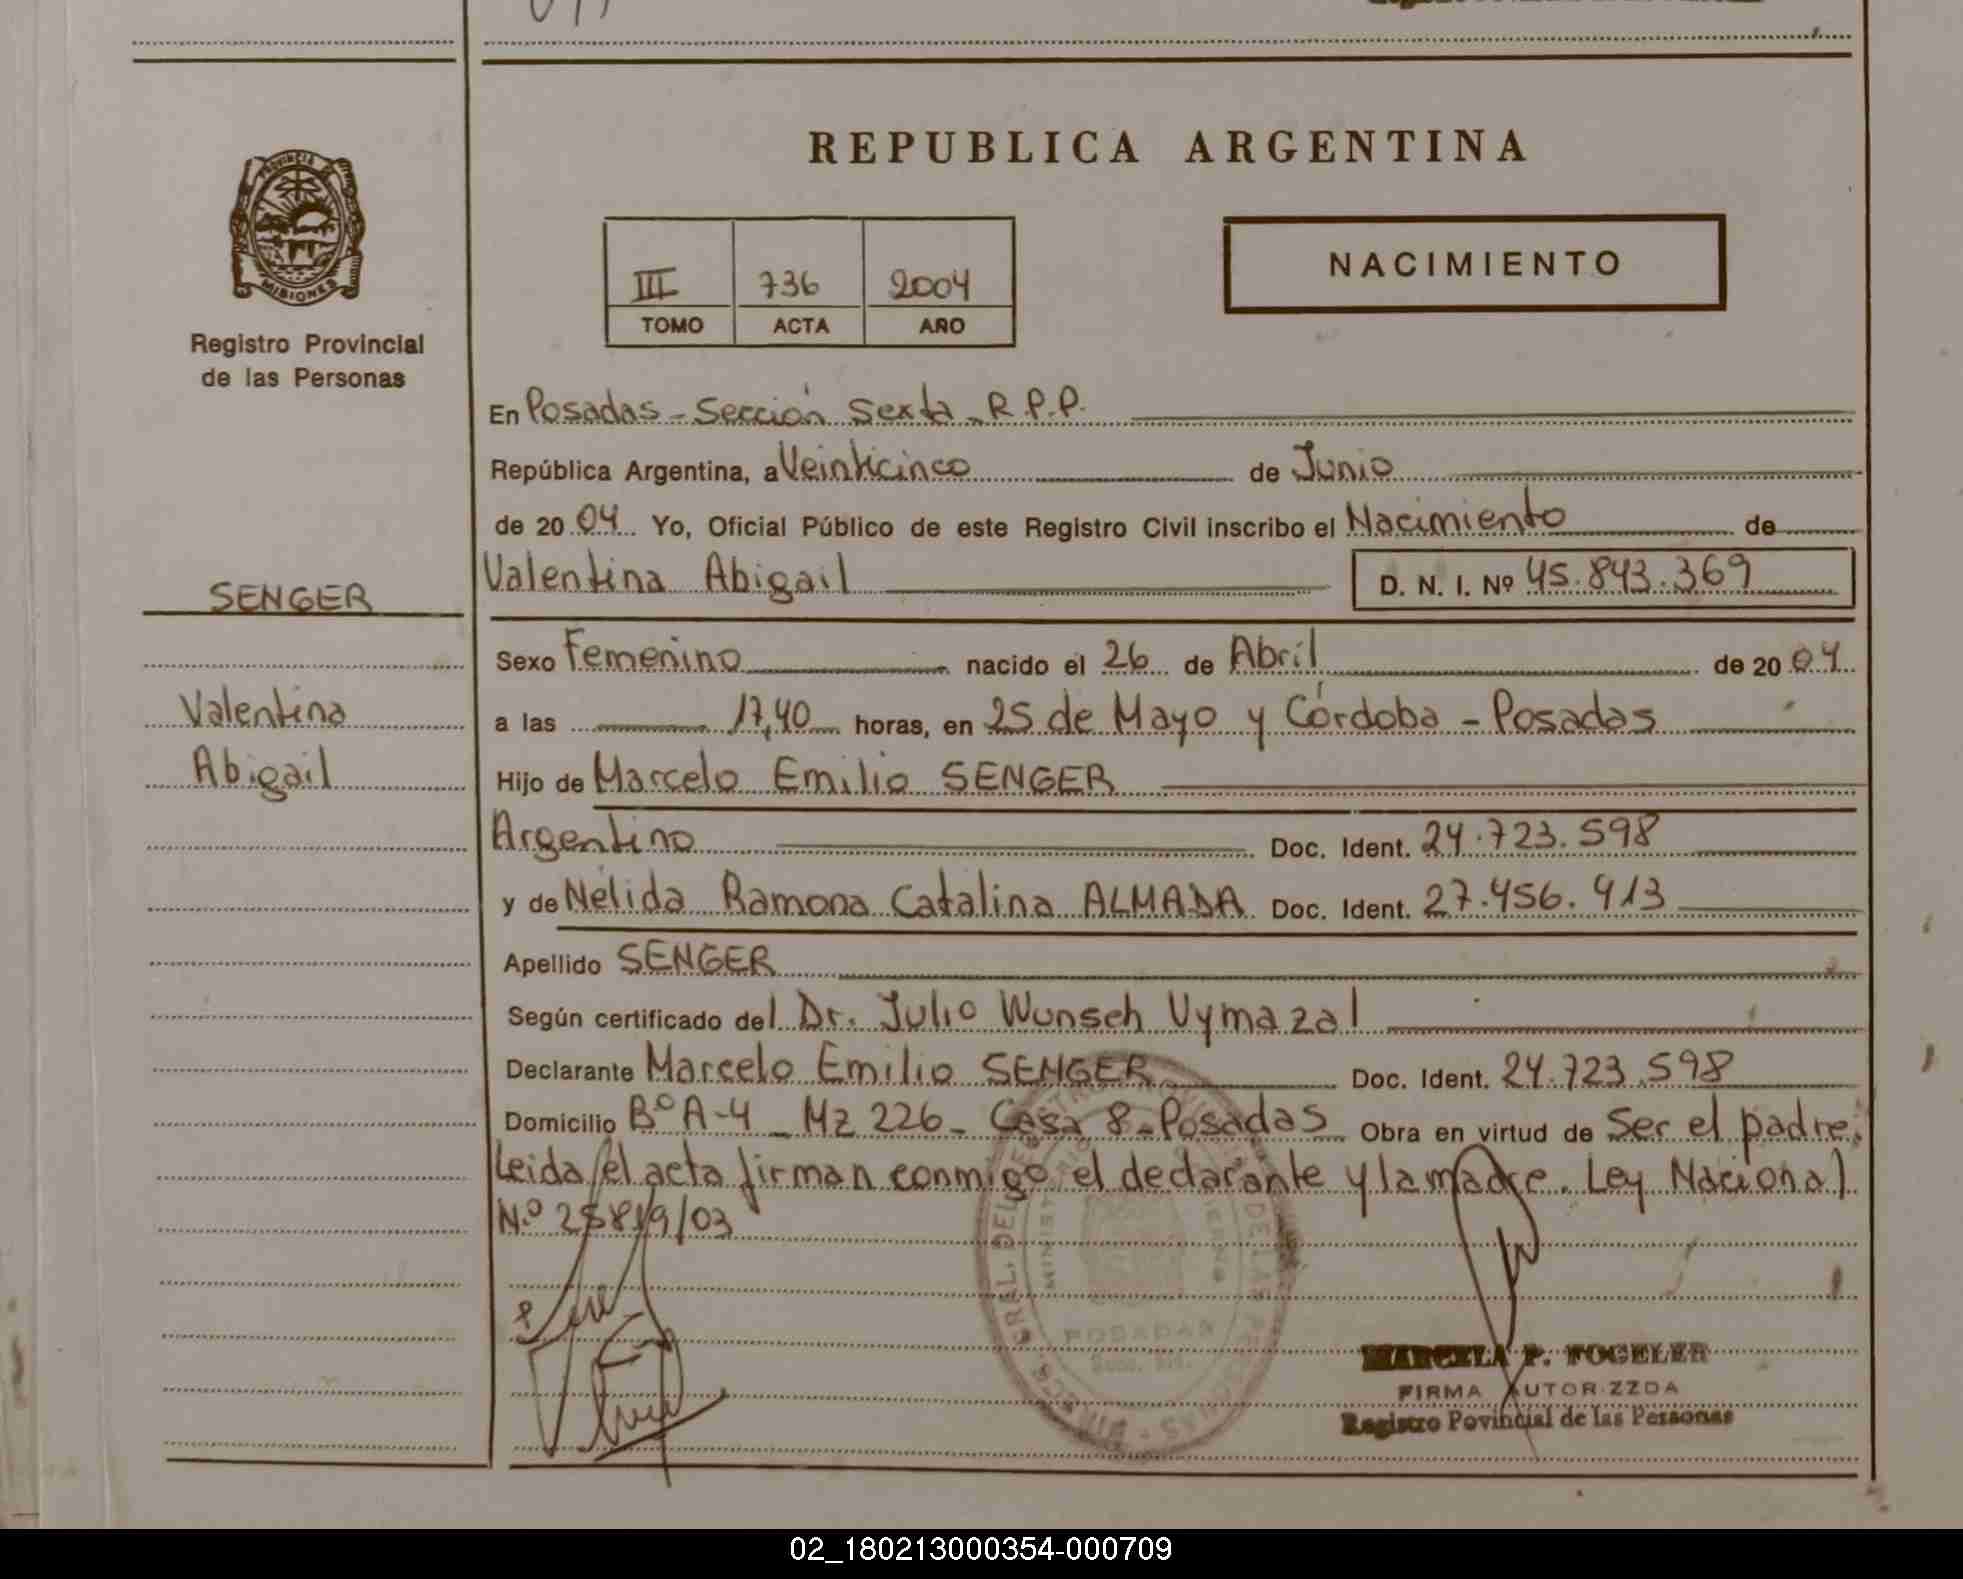 REPUBLICA ARGENTINA
PROVINCIA
MISIONES
Registro Provincial
de las Personas
III 736 2004
TOMO ACTA AÑO
NACIMIENTO
En Posadas - Sección Sexta - R.P.P.
República Argentina, a Veinticinco de Junio
de 20 04 Yo, Oficial Público de este Registro Civil inscribo el Nacimiento de
Valentina Abigail D. N. I. Nº 45.843.369
SENGER
Valentina
Abigail
Sexo Femenino nacido el 26 de Abril de 20 04
a las 17,40 horas, en 25 de Mayo y Córdoba - Posadas
Hijo de Marcelo Emilio SENGER
Argentino Doc. Ident. 24.723.598
y de Nélida Ramona Catalina ALMADA Doc. Ident. 27.456.413
Apellido SENGER
Según certificado del Dr. Julio Wunsch Vymazal
Declarante Marcelo Emilio SENGER Doc. Ident. 24.723.598
Domicilio Bº A-4 - Mz 226 - Casa 8 - Posadas Obra en virtud de Ser el padre.
Leida el acta firman conmigo el declarante y la madre. Ley Nacional
N.º 25819/03
POSADAS
MARCELA P. FOGELER
FIRMA AUTORIZZDA
Registro Povincial de las Personas
02_180213000354-000709